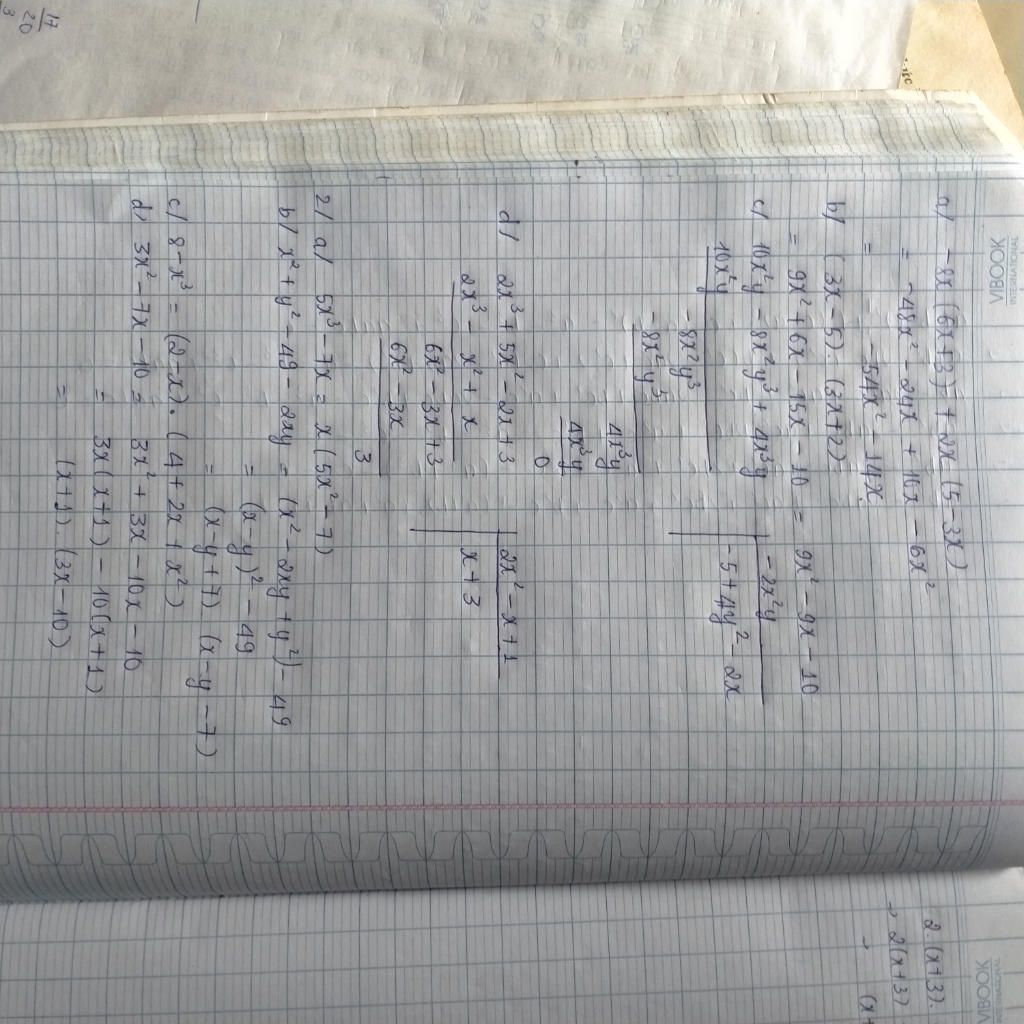 VIBOOK
INTERNATIONAL
a/ -8x (6x+3) + 2x (5-3x)
= -48x² - 24x + 10x - 6x²
= -54x² - 14x
b/ (3x-5) (3x+2)
= 9x² + 6x - 15x - 10 = 9x² - 9x - 10
c/ 10x²y - 8x²y³ + 4x³y | -2x²y
10x²y | -5+4y² - 2x
-8x²y³
-8x²y³
4x³y
4x³y
0
d/ 2x³ + 5x² - 2x + 3 | 2x² - x + 1
2x³ - x² + x | x+3
6x² - 3x + 3
6x² - 3x
3
2/ a/ 5x³ - 7x = x (5x² - 7)
b/ x² + y² - 49 - 2xy = (x² - 2xy + y²) - 49
= (x - y)² - 49
= (x - y + 7) (x - y - 7)
c/ 8 - x³ = (2-x). (4 + 2x + x²)
d/ 3x² - 7x - 10 = 3x² + 3x - 10x - 10
= 3x (x+1) - 10 (x+1)
= (x+1). (3x-10)
17
20
3
VIBOOK
INTERNATIONAL
2.(x+3).
→ 2(x+3)
→ (x+